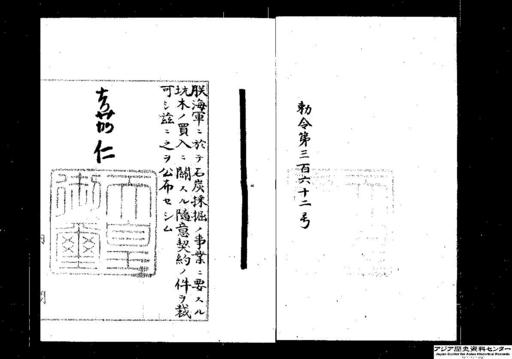 勅令第三百六十二号
朕海軍ニ於テ石炭採掘ノ事業ニ要スル
坑木ノ買入ニ關スル隨意契約ノ件ヲ裁
可シ茲ニ之ヲ公布セシム
嘉仁
天皇
御璽
アジア歴史資料センター
Japan Center for Asian Historical Records